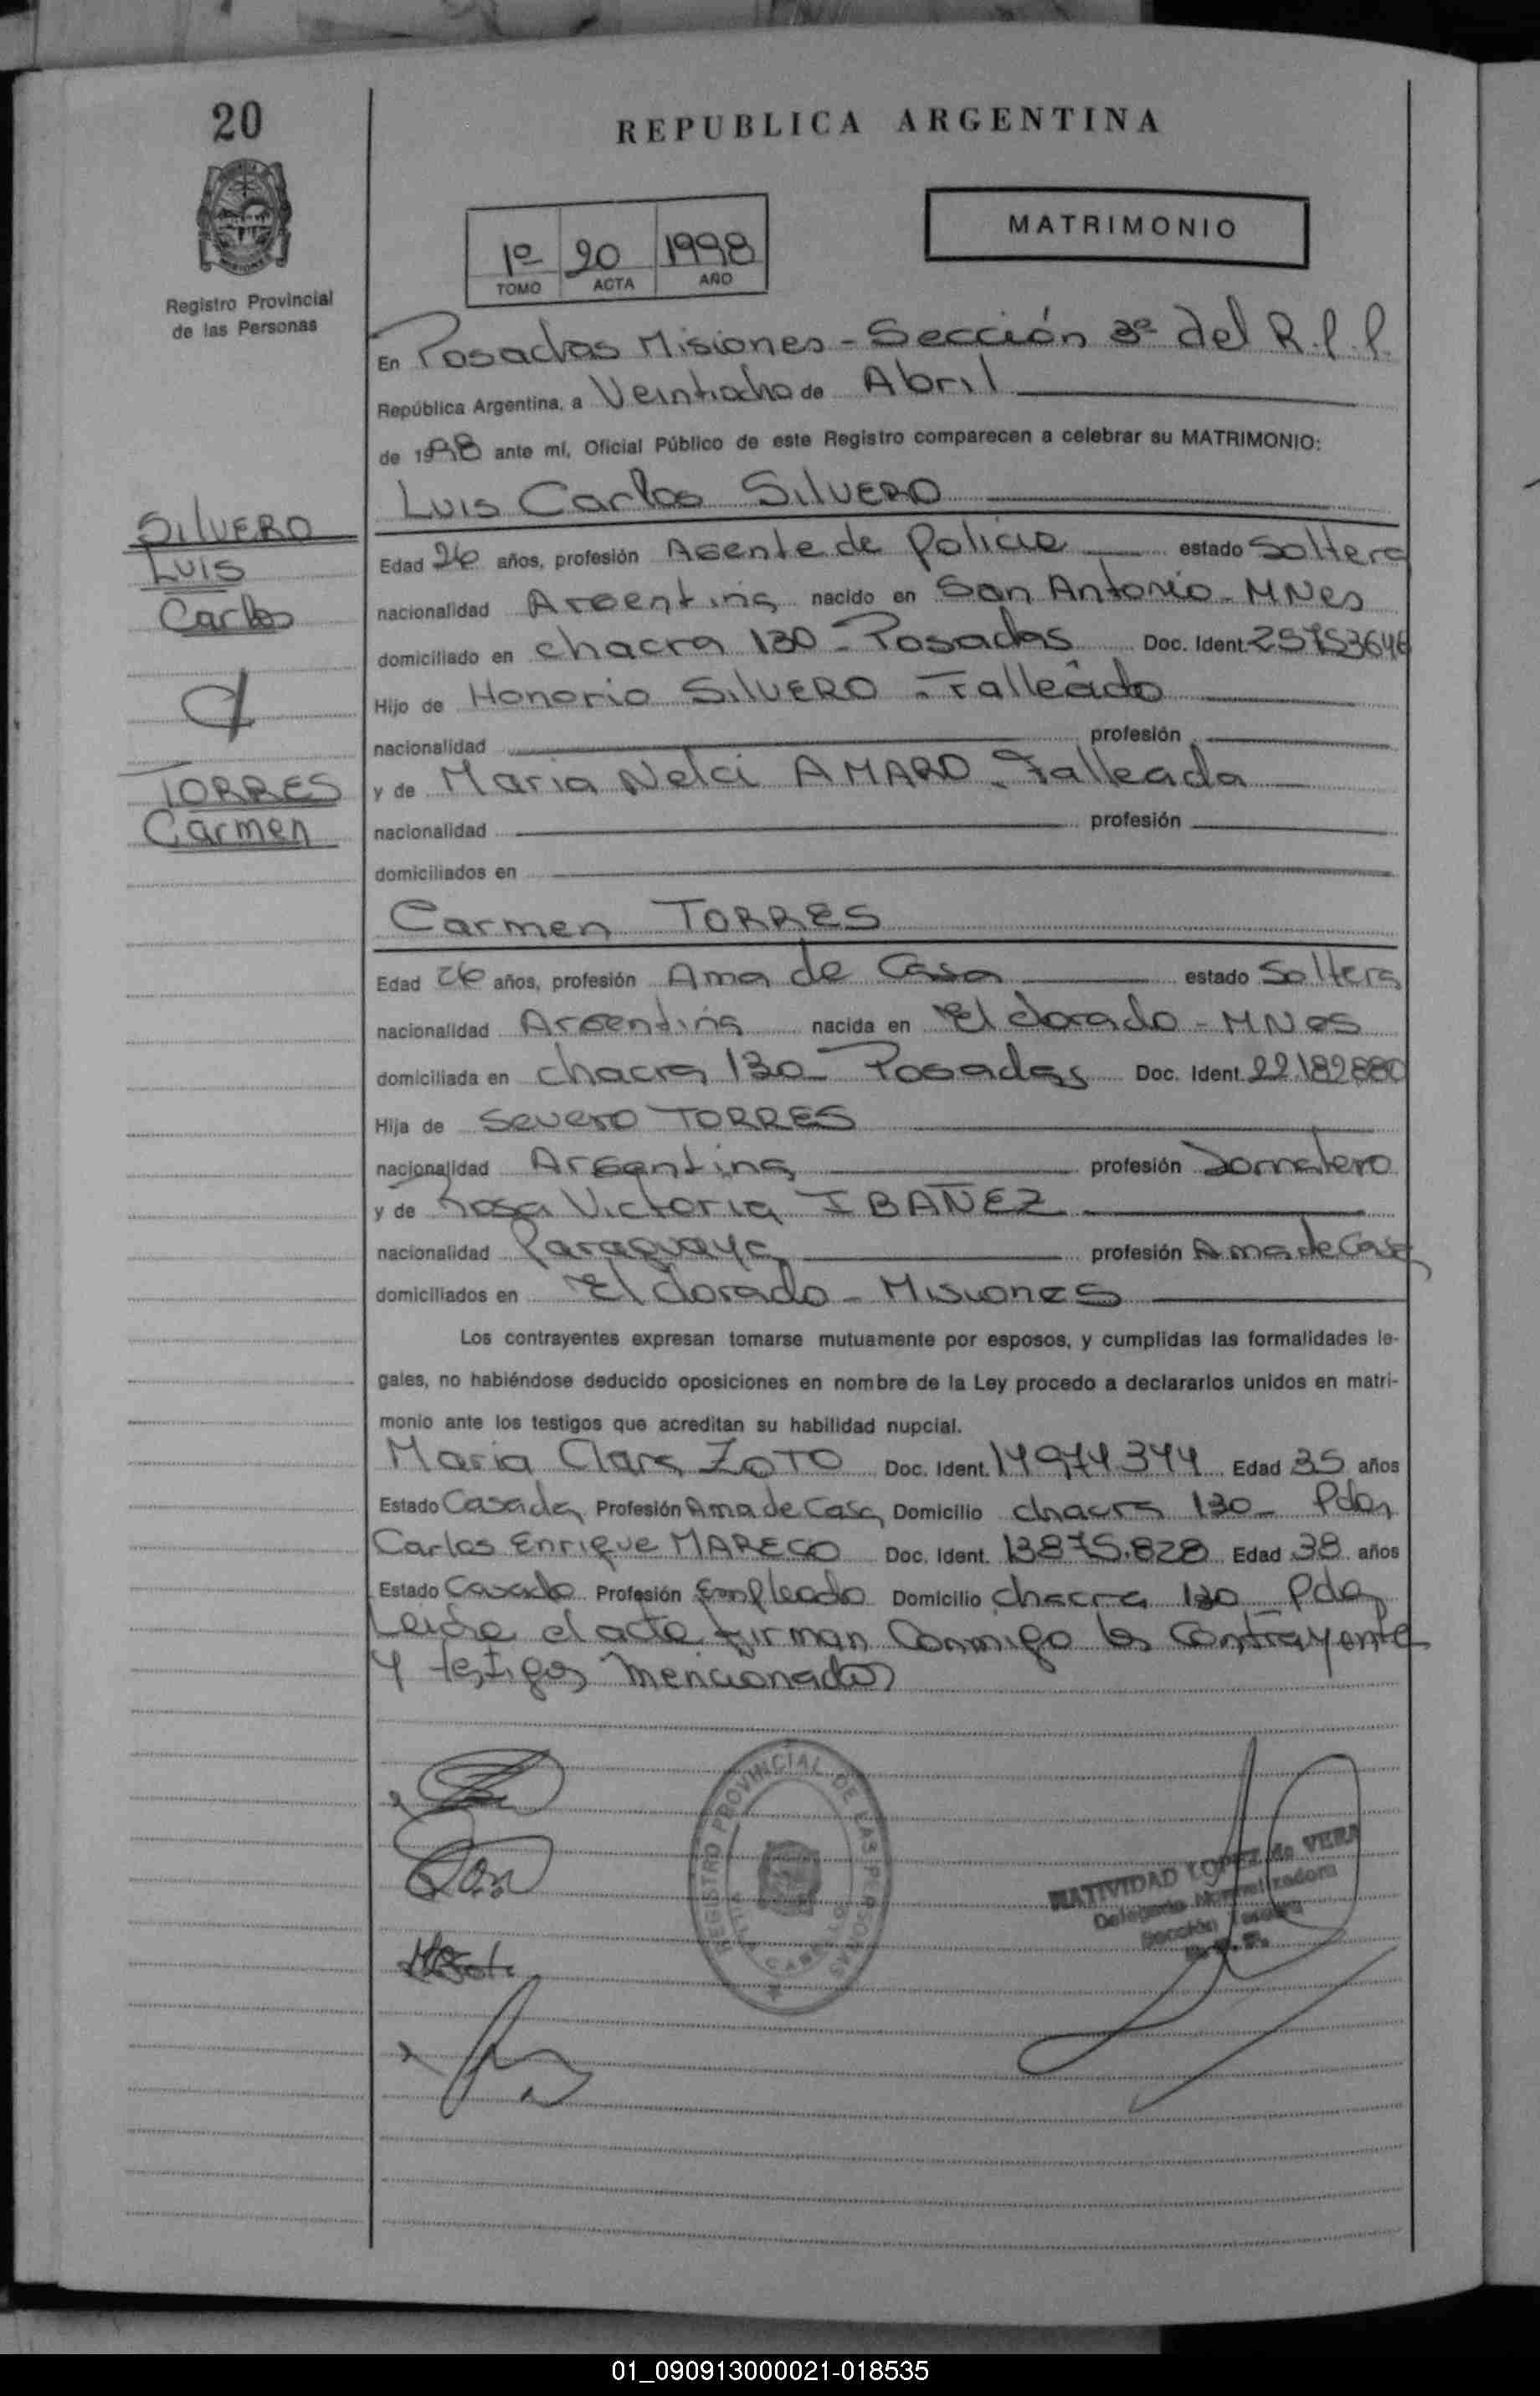 20
REPUBLICA ARGENTINA
MATRIMONIO
1º 20 1998
TOMO ACTA AÑO
Registro Provincial
de las Personas
En Posadas Misiones - Sección 3ª del R.P.P.
República Argentina, a Veintiocho de Abril
de 1998 ante mí, Oficial Público de este Registro comparecen a celebrar su MATRIMONIO:
Luis Carlos SILVERO
SILVERO
Luis
Carlos
Edad 26 años, profesión Agente de Policia estado Soltero
nacionalidad Argentina nacido en San Antonio - MNes
domiciliado en chacra 130 - Posadas Doc. Ident. 25753646
Hijo de Honorio SILVERO - Falleado
nacionalidad profesión
y de Maria Nelci AMARO - Falleada
nacionalidad profesión
domiciliados en
TORRES
Carmen
Carmen TORRES
Edad 26 años, profesión Ama de Casa estado Soltera
nacionalidad Argentina nacida en El dorado - MNes
domiciliada en chacra 130 - Posadas Doc. Ident. 22.182.880
Hija de Severo TORRES
nacionalidad Argentina profesión Jornalero
y de Rosa Victoria IBAÑEZ
nacionalidad Paraguaya profesión Ama de Casa
domiciliados en El dorado - Misiones
Los contrayentes expresan tomarse mutuamente por esposos, y cumplidas las formalidades le-
gales, no habiéndose deducido oposiciones en nombre de la Ley procedo a declararlos unidos en matri-
monio ante los testigos que acreditan su habilidad nupcial.
Maria Clara ZOTO Doc. Ident. 14974344 Edad 35 años
Estado Casada Profesión Ama de Casa Domicilio chacra 130 - Pdas
Carlos Enrique MARECO Doc. Ident. 13875.828 Edad 38 años
Estado Casado Profesión Empleado Domicilio chacra 130 Pdas
Leida el acta firman conmigo los contrayente
y testigos mencionados
REGISTRO PROVINCIAL DE LAS PERSONAS
NATIVIDAD LOPEZ de VERA
Delegada Normalizadora
Sección Tercera
R.P.P.
01_090913000021-018535